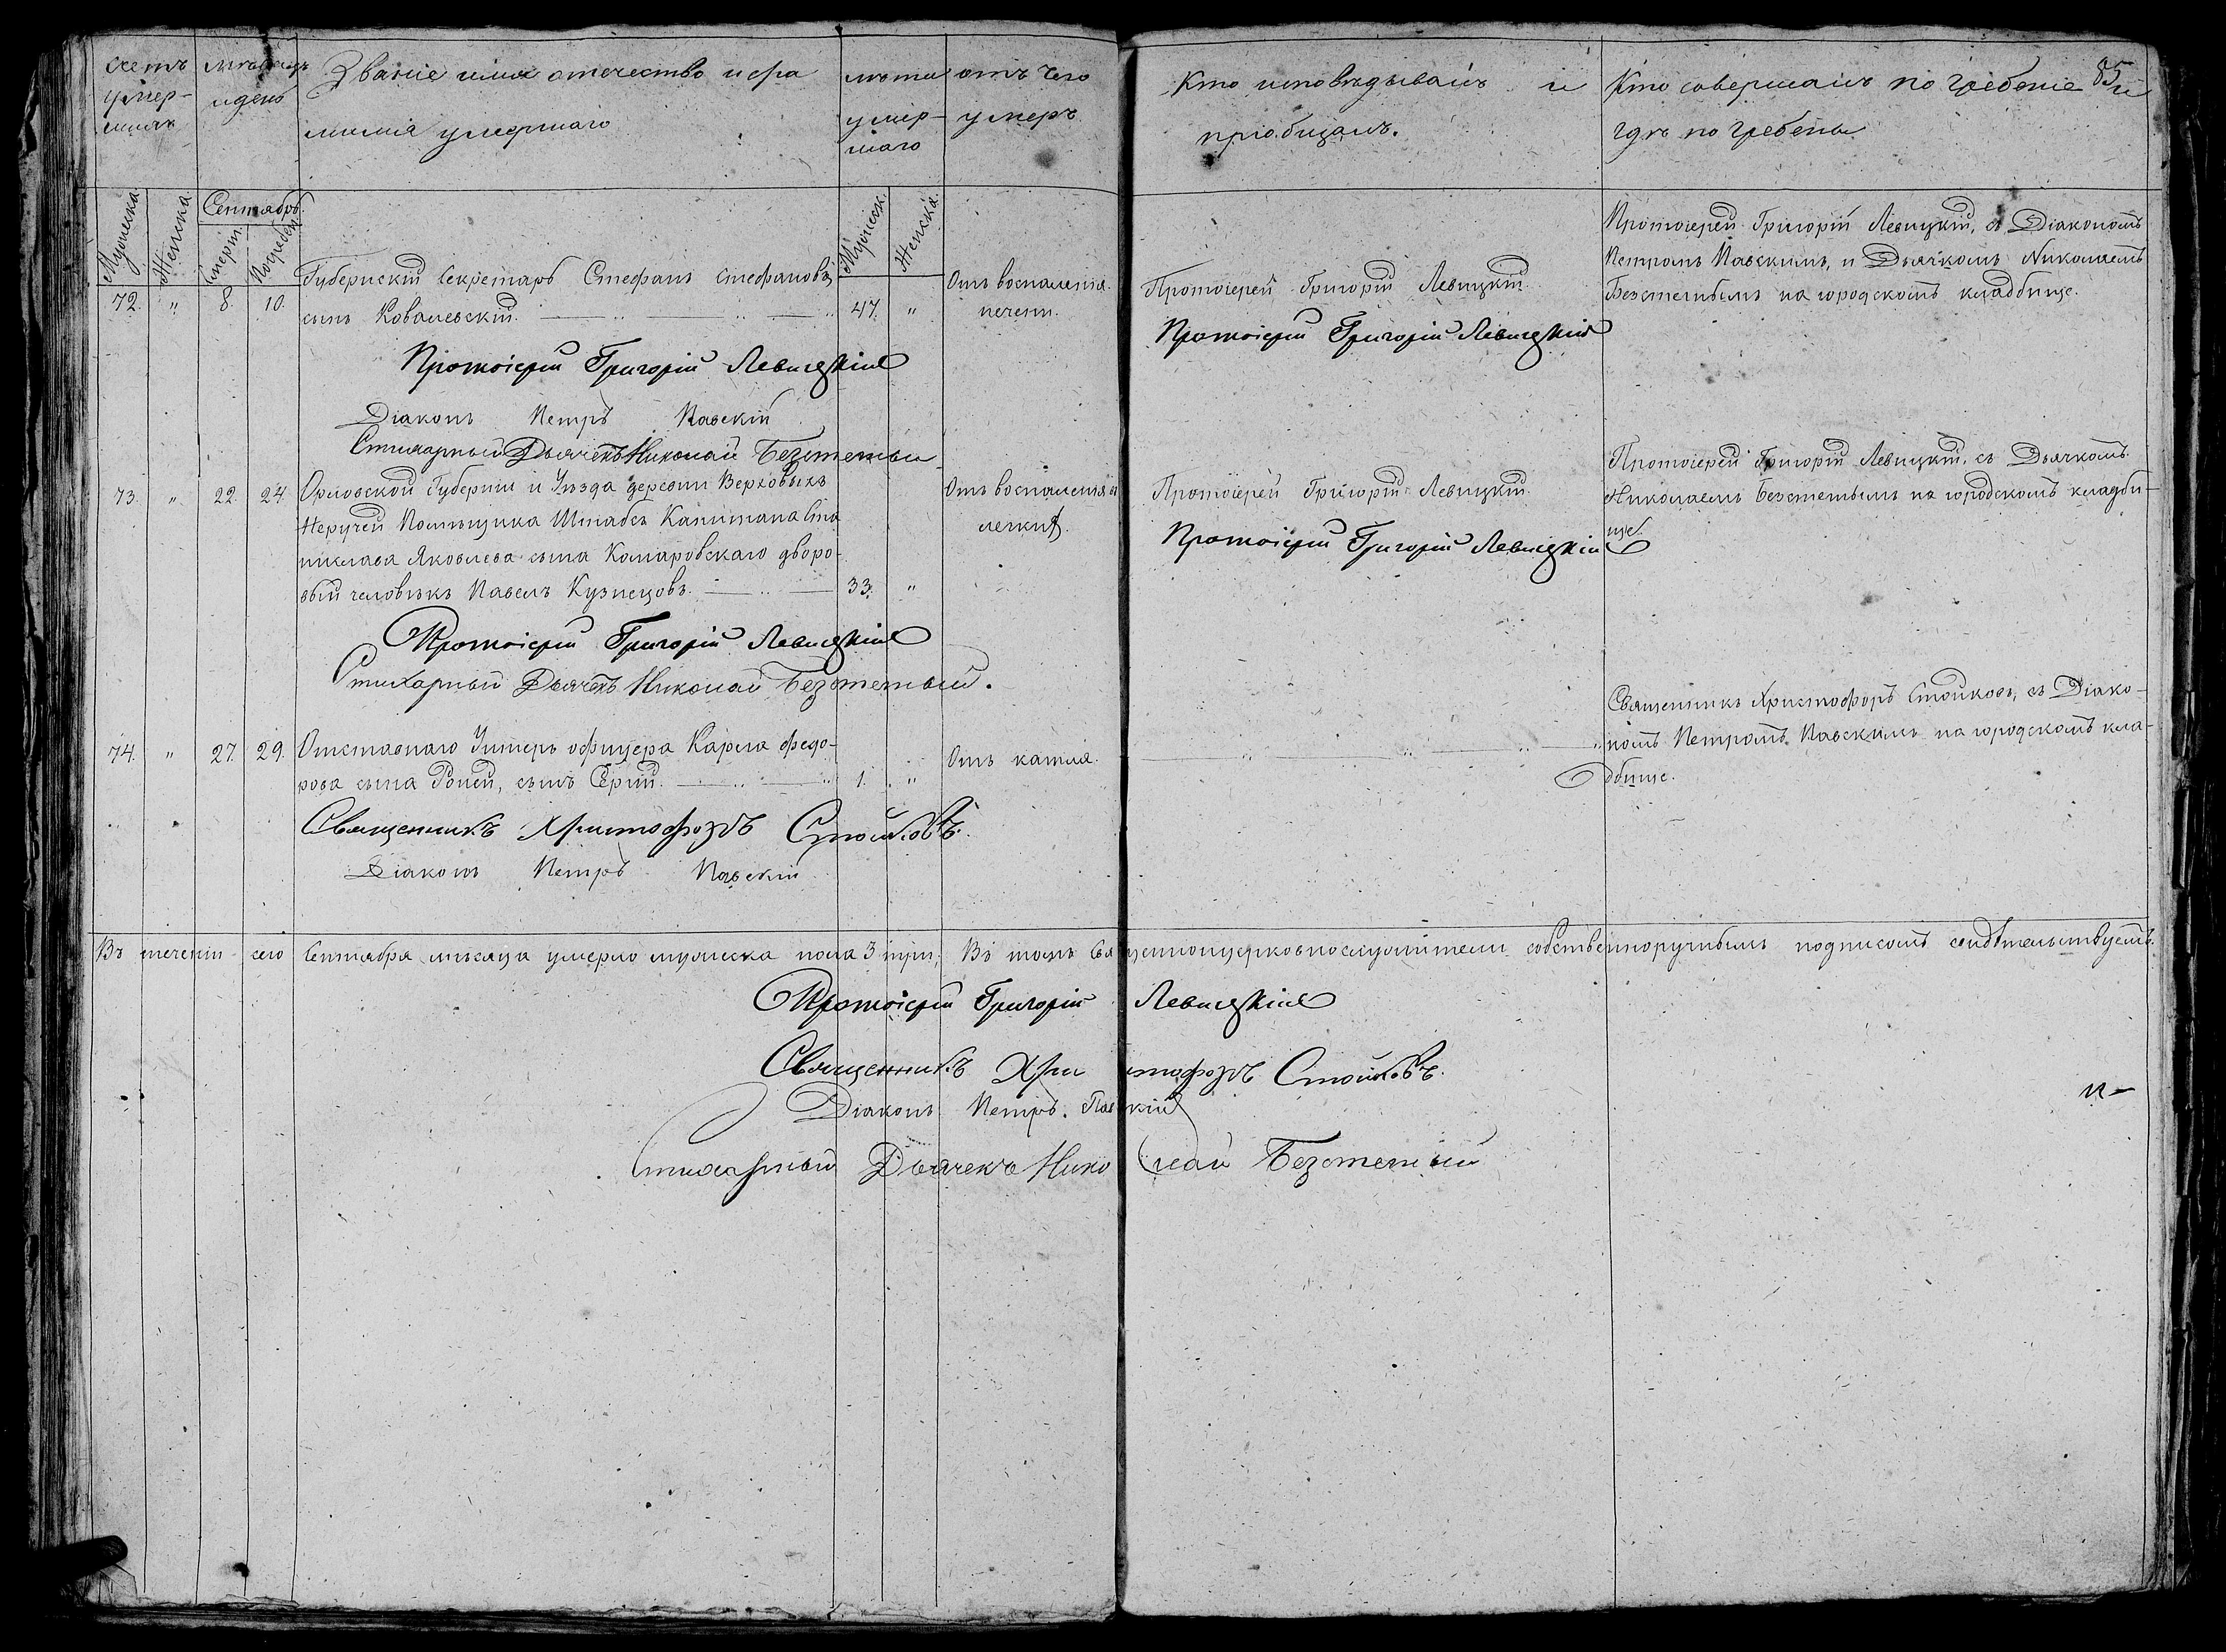 Счетъ умер-шихъ
Мужеска
Женска
мѣсяцъ и день
Сентябрь.
Смерт.
Погребен.
Званіе имя отечество и фа
милія умершаго
лѣта умер-шаго
Мужеск.
Женска.
отъ чего
умеръ.
Кто исповѣдывалъ и
пріобщалъ.
Кто совершалъ погребеніе и
гдѣ погребены
85
72. " 8. 10.
Губернскій Секретарь Стефанъ Стефановъ
сынъ Ковалевскій.
47. "
Отъ воспаленія
печени.
Протоіерей Григорій Левицкій.
Протоіерей Григорій Левицкій
Протоіерей Григорій Левицкій, съ Діакономъ
Петромъ Павскимъ, и Дьячкомъ Николаемъ
Безстетнымъ на городскомъ кладбище.
Протоіерей Григорій Левицкій
Діаконъ Петръ Павскій
Стихарный Дьячекъ Николай
73. " 22. 24.
Орловской Губерніи и Уѣзда деревни Верховыхъ
Неручей Помѣщика Штабсъ Капитана Ста
нислава Яковлева сына Комаровскаго дворо-
вый человѣкъ Павелъ Кузнецовъ.
33. "
Отъ воспаленія
легкихъ.
Протоіерей Григорій Левицкій.
Протоіерей Григорій Левицкій
Протоіерей Григорій Левицкій, съ Дьячкомъ
Николаемъ Безстетнымъ на городскомъ кладби-
ще.
Протоіерей Григорій Левицкій
Стихарный Дьячекъ Николай
74. " 27. 29.
Отставнаго Унтеръ офицера Карла Федо-
рова сына сынъ Сергій.
1. "
Отъ кашля.
Священникъ Христофоръ Стойковъ, съ Діако-
номъ Петромъ Павскимъ на городскомъ кла-
дбище.
Священникъ Христофоръ Стойковъ.
Діаконъ Петръ Павскій
Въ теченіи сего Сентября мѣсяца умерло мужеска пола 3 три, Въ томъ Священноцерковнослужители собственноручнымъ подписомъ свидѣтельствуемъ.
Протоіерей Григорій Левицкій
Священникъ Христофоръ Стойковъ.
Діаконъ Петръ Павскій
Стихарный Дьячекъ Николай